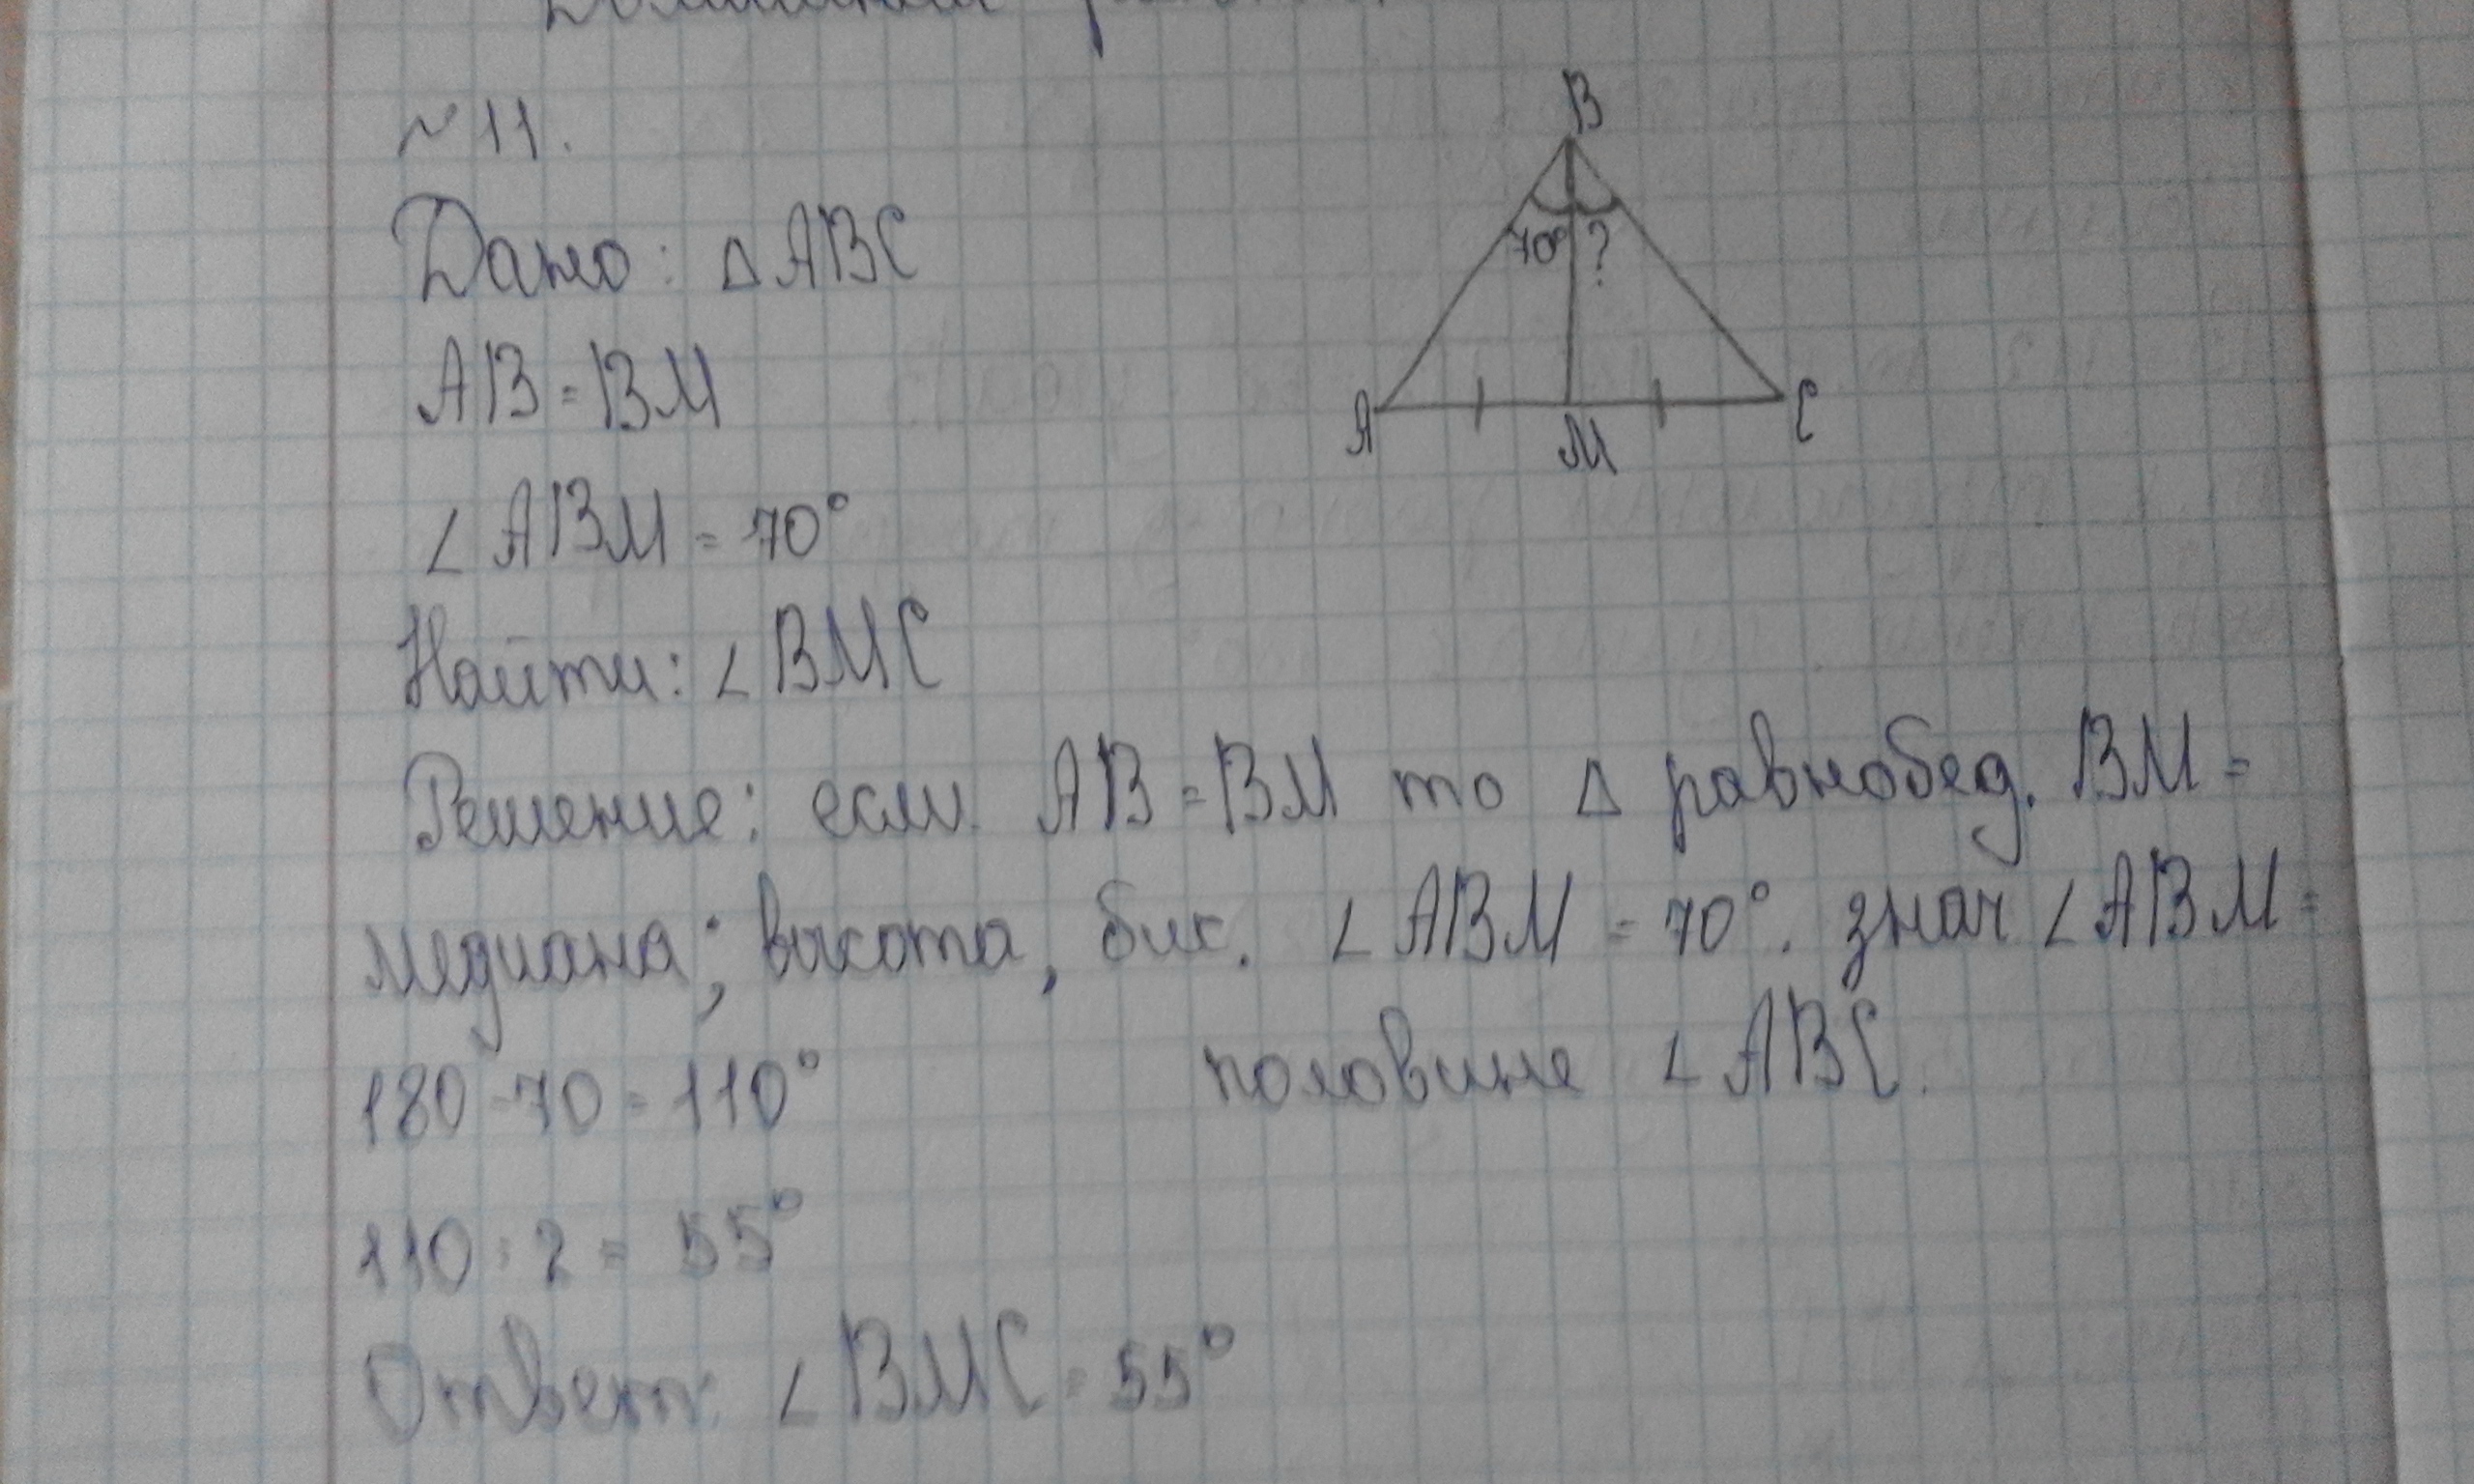 №11.
Дано: △ABC
AB=BM
∠ABM=70°
Найти: ∠BMC
B
70° ?
A M C
Решение: если AB=BM то △ равнобед. BM=
медиана; высота, бис. ∠ABM=70°. знач ∠ABM=
половине ∠ABC.
180-70=110°
110:2=55°
Ответ: ∠BMC=55°